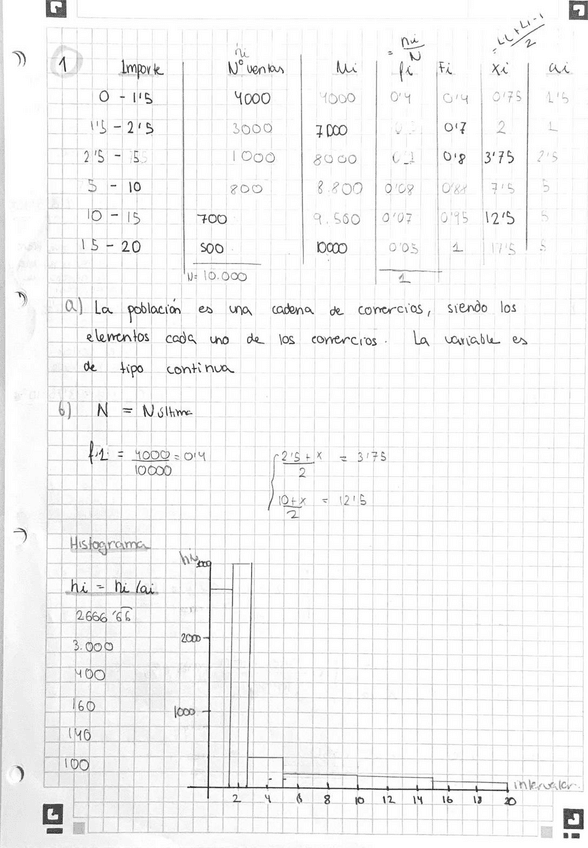 1 Importe ni Nº ventas Ni = ni/N fi Fi = Li+Li-1/2 xi ai
0 - 1'5 4000 4000 0'4 0'4 0'75 1'5
1'5 - 2'5 3000 7000 0'7 2 1
2'5 - 5 1000 8000 0'8 3'75 2'5
5 - 10 800 8.800 0'08 0'88 7'5 5
10 - 15 700 9.500 0'07 0'95 12'5 5
15 - 20 500 10000 0'05 1 17'5 5
N= 10.000 1
a) La población es una cadena de comercios, siendo los
elementos cada uno de los comercios. La variable es
de tipo continua
b) N = Núltima
f1 = 4000/10000 = 0'4
2'5 + x / 2 = 3'75
10 + x / 2 = 12'5
Histograma
hi = ni/ai
2666'66
3.000
400
160
140
100
hi
3000
2000
1000
2 4 6 8 10 12 14 16 18 20
intervalos